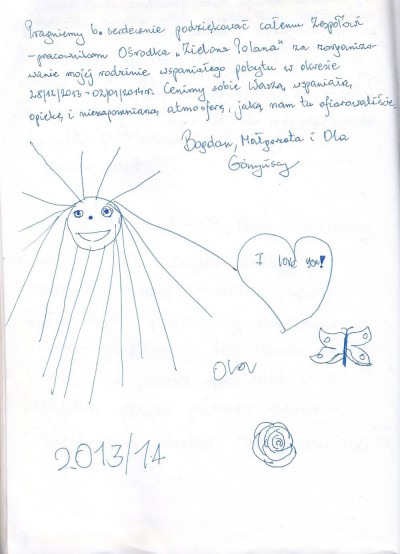 Pragniemy b. serdecznie podziękować całemu Zespołowi
- pracownikom Ośrodka „Zielona Polana" za zorganizo-
wanie mojej rodzinie wspaniałego pobytu w okresie
28/12/2013 - 02/01/2014r. Cenimy sobie Waszą wspaniałą
opiekę i niezapomnianą atmosferę, jaką nam tu ofiarowaliście.
Bogdan, Małgorzata i Ola
I love you!
Ola
2013/14